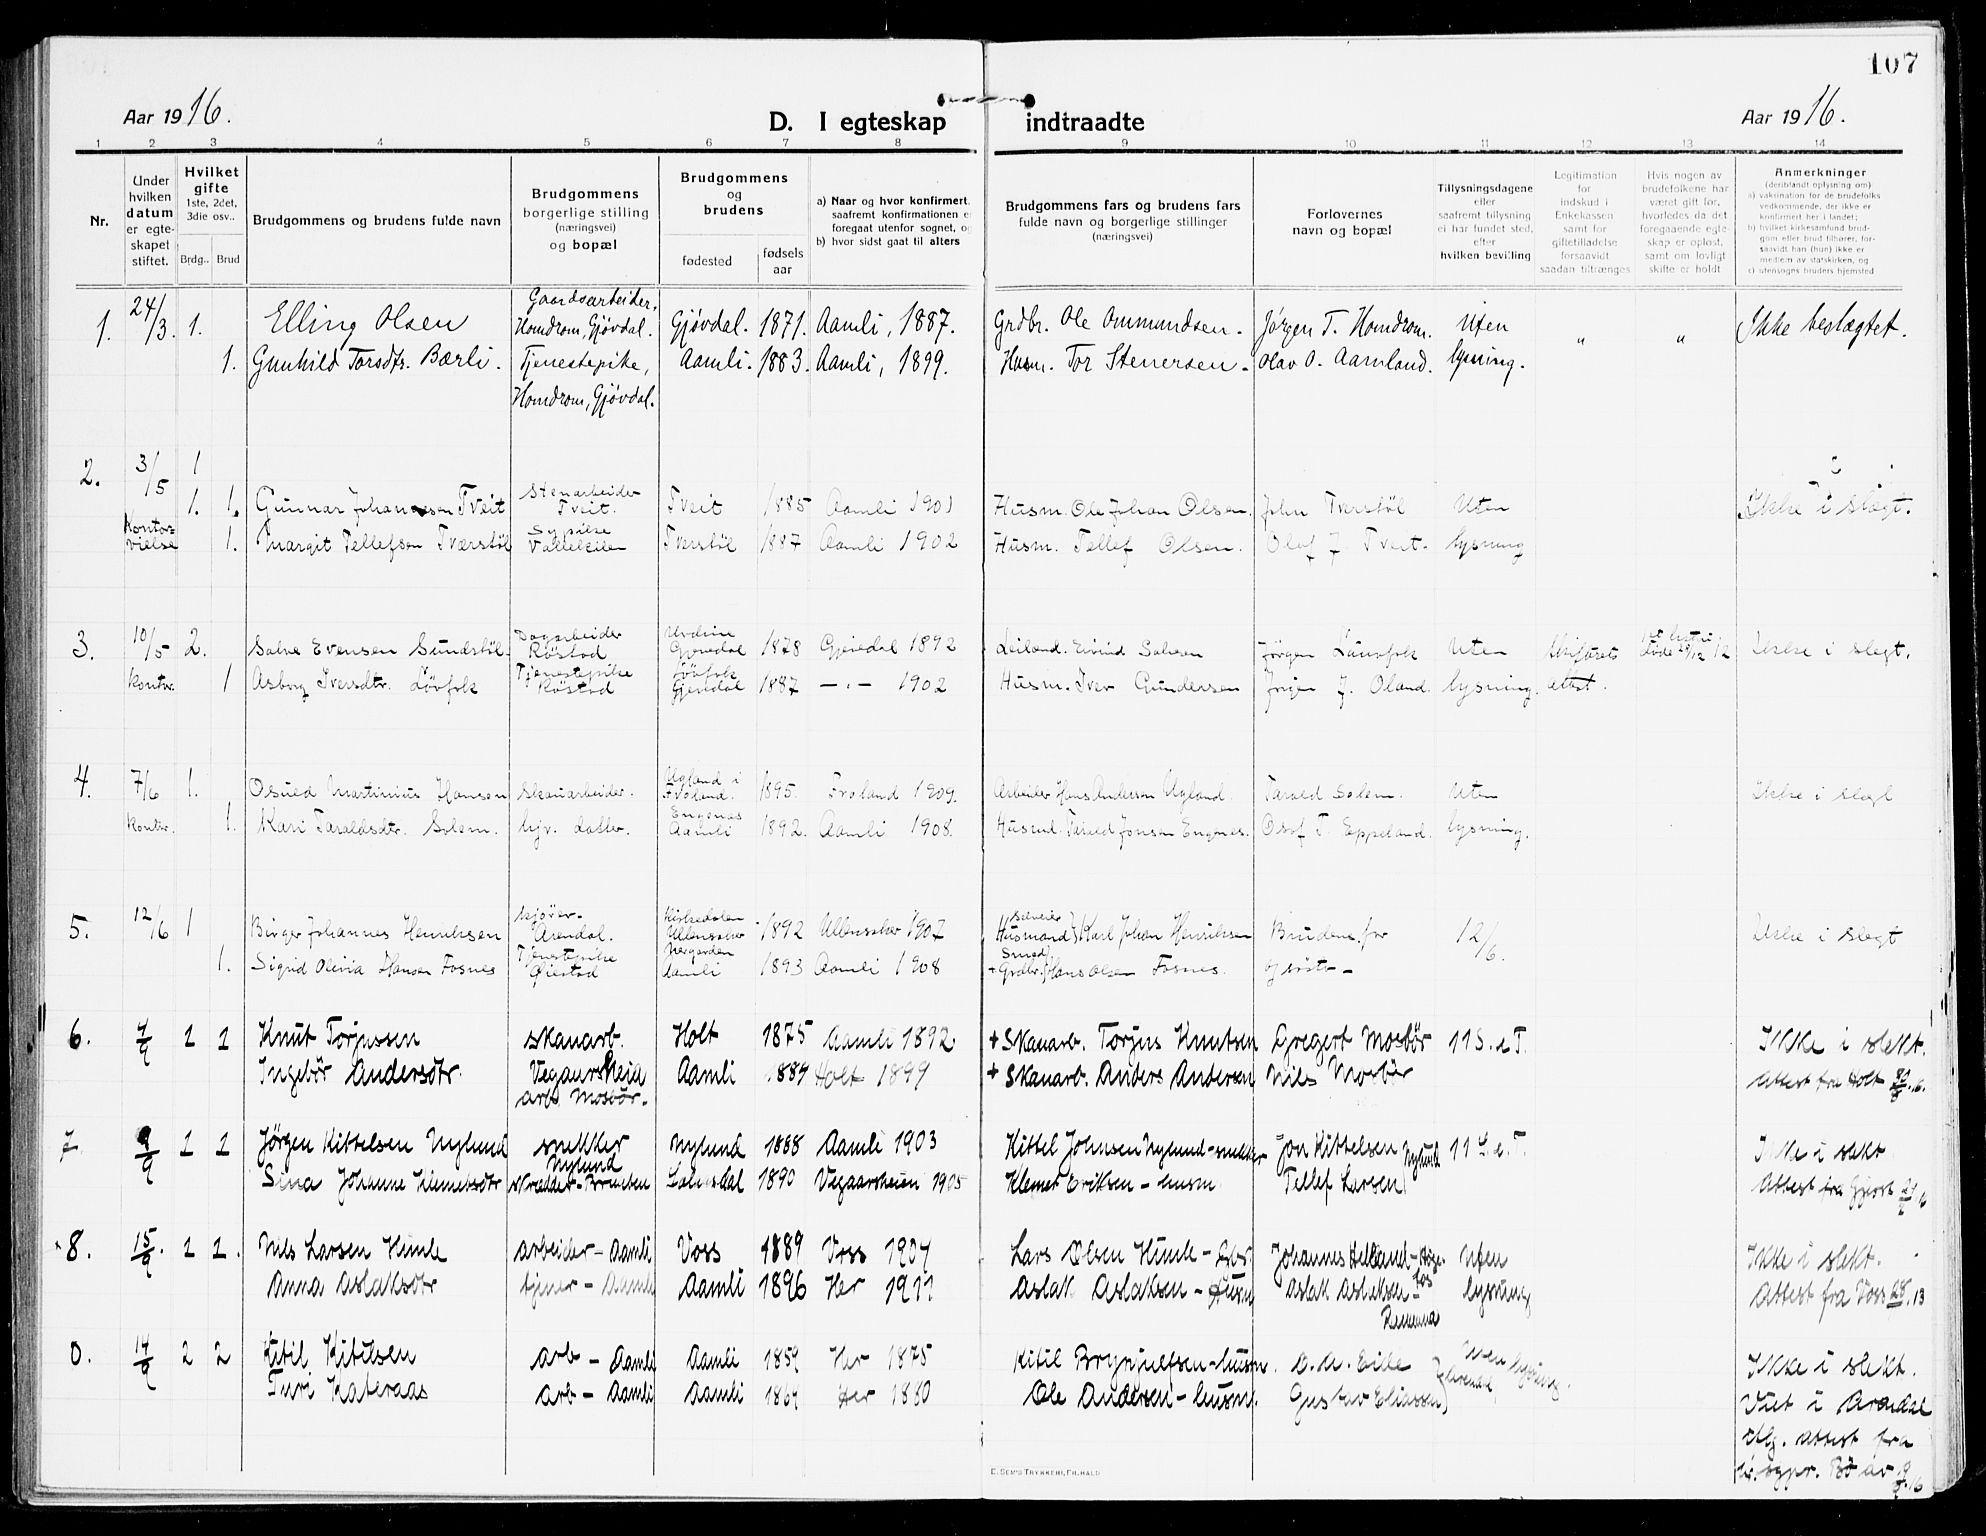 107
Aar 1916.
D. I egteskap indtraadte
Aar 1916.
1 2 3 4 5 6 7 8 9 10 11 12 13 14
Nr.
Under hvilken datum er egteskapet stiftet.
Hvilket gifte 1ste, 2det, 3die osv..
Brdg.. Brud
Brudgommens og brudens fulde navn
Brudgommens borgerlige stilling (næringsvei) og bopæl
Brudgommens og brudens
fødested
fødsels aar
a) Naar og hvor konfirmert, saafremt konfirmationen er foregaat utenfor sognet, og
b) hvor sidst gaat til alters
Brudgommens fars og brudens fars fulde navn og borgerlige stillinger (næringsvei)
Forlovernes navn og bopæl
Tillysningsdagene eller saafremt tillysning ei har fundet sted, efter hvilken bevilling
Legitimation for indskud i Enkekassen samt for giftetilladelse forsaavidt saadan tiltrænges
Hvis nogen av brudefolkene har været gift før, hvorledes da det foregaaende egteskap er opløst, samt om lovligt skifte er holdt
Anmerkninger
(deriblandt oplysning om)
a) vaksination for de brudefolks vedkommende, der ikke er konfirmert her i landet;
b) hvilket kirkesamfund brudgom eller brud tilhører, forsaavidt han (hun) ikke er medlem av statskirken, og
c) utensogns bruders hjemsted
1. 24/3. 1. Elling Olsen Gaardsarbeider, Homdrom, Gjøvdal. Gjøvdal. 1871. Aamli, 1887. Grdbr. Ole Ommundsen. Jørgen T. Homdrom. Uten " " Ikke beslægtet.
1. Gunhild Torsdtr. Bærli. Tjenestepike, Homdrom, Gjøvdal. Aamli. 1883. Aamli, 1899. Husm. Tor Stenersen. Olav O. Aamland. lysning.
2. 3/5 1
1. 1. Gunnar Johannesen Tveit Stenarbeider Tveit. Tveit 1885 Aamli 1901 Husm. Ole Johan Olsen. John Tverstøl Uten Ikke i slegt.
Kontorvielse 1. Margit Tellefsen Tværstøl Sypike Valleheien Tverstøl 1887 Aamli 1902 Husm. Tellef Olsen. Olaf J. Tveit. lysning
3. 10/5 2. Salve Evensen Sundstøl Dagarbeider Røstad Gjevedal 1878 Gjevedal 1892 Leiland. Eivind Salvesen Jørgen Løvfolk Uten Skiftesrets Ikke i slegt.
kontor. 1 Asborg Iversdtr. Løvfolk Tjenestepike Røstad Løvfolk Gjevedal 1887 —"— 1902 Husm. Iver Gundersen Jørgen J. Oland. lysning. attest.
4. 7/6 1. Osuld Martinius Hansen Skauarbeider. Ugland i Froland. 1895. Froland 1909. Arbeider Hans Andersen Ugland. Tarald Solem. Uten Ikke i slegt
kontor. 1. Kari Taraldsdtr. Solem. hjv. datter. Engenes Aamli 1892. Aamli 1908. Husmd. Tarald Jonsen Engnes. Olaf T. Eppeland. lysning.
5. 12/6 1 Birger Johannes Henriksen Arendal. Ullensaker 1892 Ullensaker 1907 Selveier Husmand} Karl Johan Henriksen Brudens far 12/6. Ikke i slegt
1. Sigrid Olivia Hansen Fosnes Tjenestepike Øiestad Aamli 1893 Aamli 1908 Smed + Grdbr.} Hans Olsen Fosnes.
6. 4/9 1 1 Knut Torjussen skauarb. Holt 1875 Aamli 1892 + Skauarb. Torjus Knutsen Gregert Mosbør 11 S. e T. Ikke i slekt.
Ingebør Andersdtr. Vegaarsheia arb Mosbør. Aamli 1884 Holt 1899 + Skauarb. Anders Andersen Nils Mosbør Attest fra Holt
7 9/9 1 1 Jørgen Kittelsen Nylund snekker Nylund Nylund 1888 Aamli 1903 Kittel Johnsen Nylund - snekker Jon Kittelsen 11 S. e. T. Ikke i slekt
Sina Johanne Klemetsdtr skrædder - 1890 Vegaarsheien 1905 Klemet Eriksen - husm. Tellef Larsen} Nylund Attest fra
8. 15/9. 1 1. Nils Larsen Himle arbeider - Aamli Voss 1889 Voss 1904 Lars Olsen Himle - Gbr. Uten Ikke i slekt.
Anna Aslaksdtr tjener - Aamli Aamli 1896 Her 1911 Aslak Aslaksen - Husm Aslak Aslaksen lysning Attest fra Voss
0. 14/9 2 2 Kitil Kitilsen arb - Aamli Aamli 1859 Her 1875 Kitil Brynjulfsen - husm. O. A. Eide Uten lysning. Ikke i slekt.
Turi Kateraas arb - Aamli Aamli 1864 Her 1880 Ole Andersen - husm. Gustav Eliassen} Arendal Viet i Arendal
attest fra
E. Sem's Trykkeri, Fr.hald